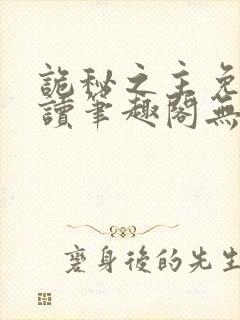 詭秘之主免
讀筆趣閣無
變身後的先生